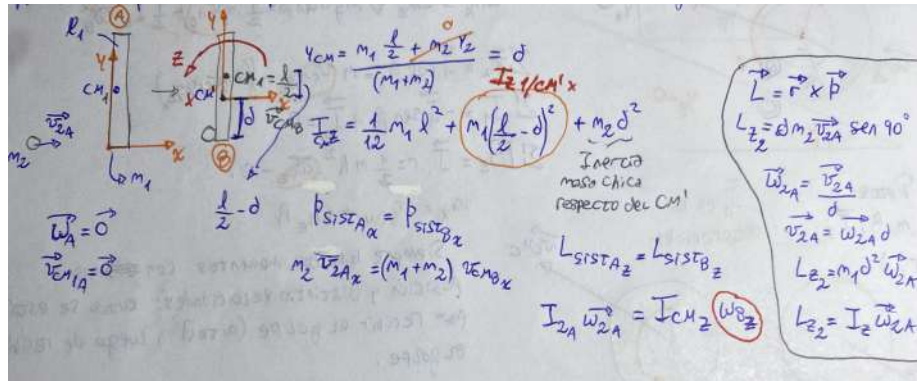 A
l₁
Y
CM₁
v₂A
m₂
X
m₁
ω_A = 0
v_CM₁A = 0
Y
Z
CM₁ = l/2
X CM'
X
d
v_CM_B
B
l/2 - d
Y_CM = (m₁ l/2 + m₂ Y₂) / (m₁+m₂) = d
0
I_Z 1/CM' x
I_CM_Z = 1/12 m₁ l² + m₁(l/2 - d)² + m₂ d²
Inercia
masa chica
respecto del CM'
p_SIST_A_x = p_SIST_B_x
m₂ v₂A_x = (m₁+m₂) v_CM_B_x
L_SIST_A_Z = L_SIST_B_Z
I₂A ω₂A = I_CM_Z ω_B_Z
L = r x p
L_Z₂ = d m₂ v₂A sen 90°
ω₂A = v₂A / d
v₂A = ω₂A d
L_Z₂ = m₁ d² ω₂A
L_Z₂ = I_Z ω₂A